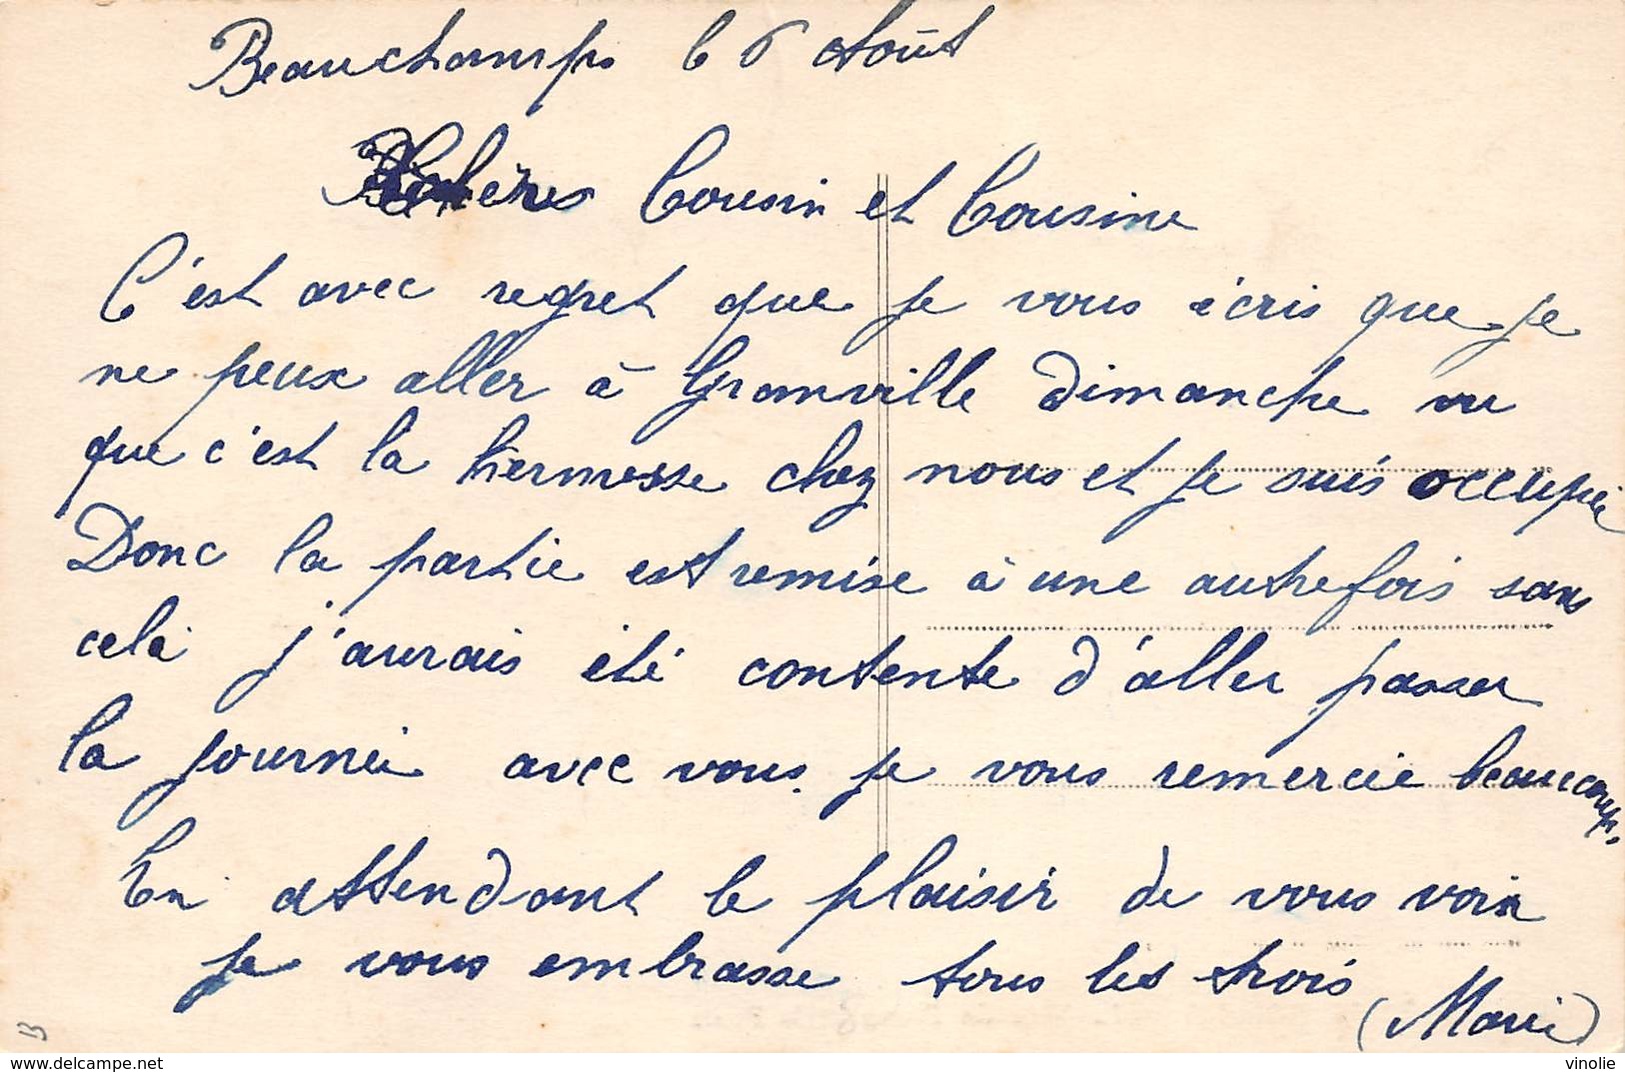 Beauchamps le 6 Août
Chères Cousin et Cousine
C'est avec regret que je vous écris que je
ne peux aller à Granville dimanche vu
que c'est la kermesse chez nous et je suis occupée
Donc la partie est remise à une autre fois sans
cela j'aurais été contente d'aller passer
la journée avec vous. je vous remercie beaucoup.
En attendant le plaisir de vous voir
je vous embrasse tous les trois
(Marie)
B
vinolie